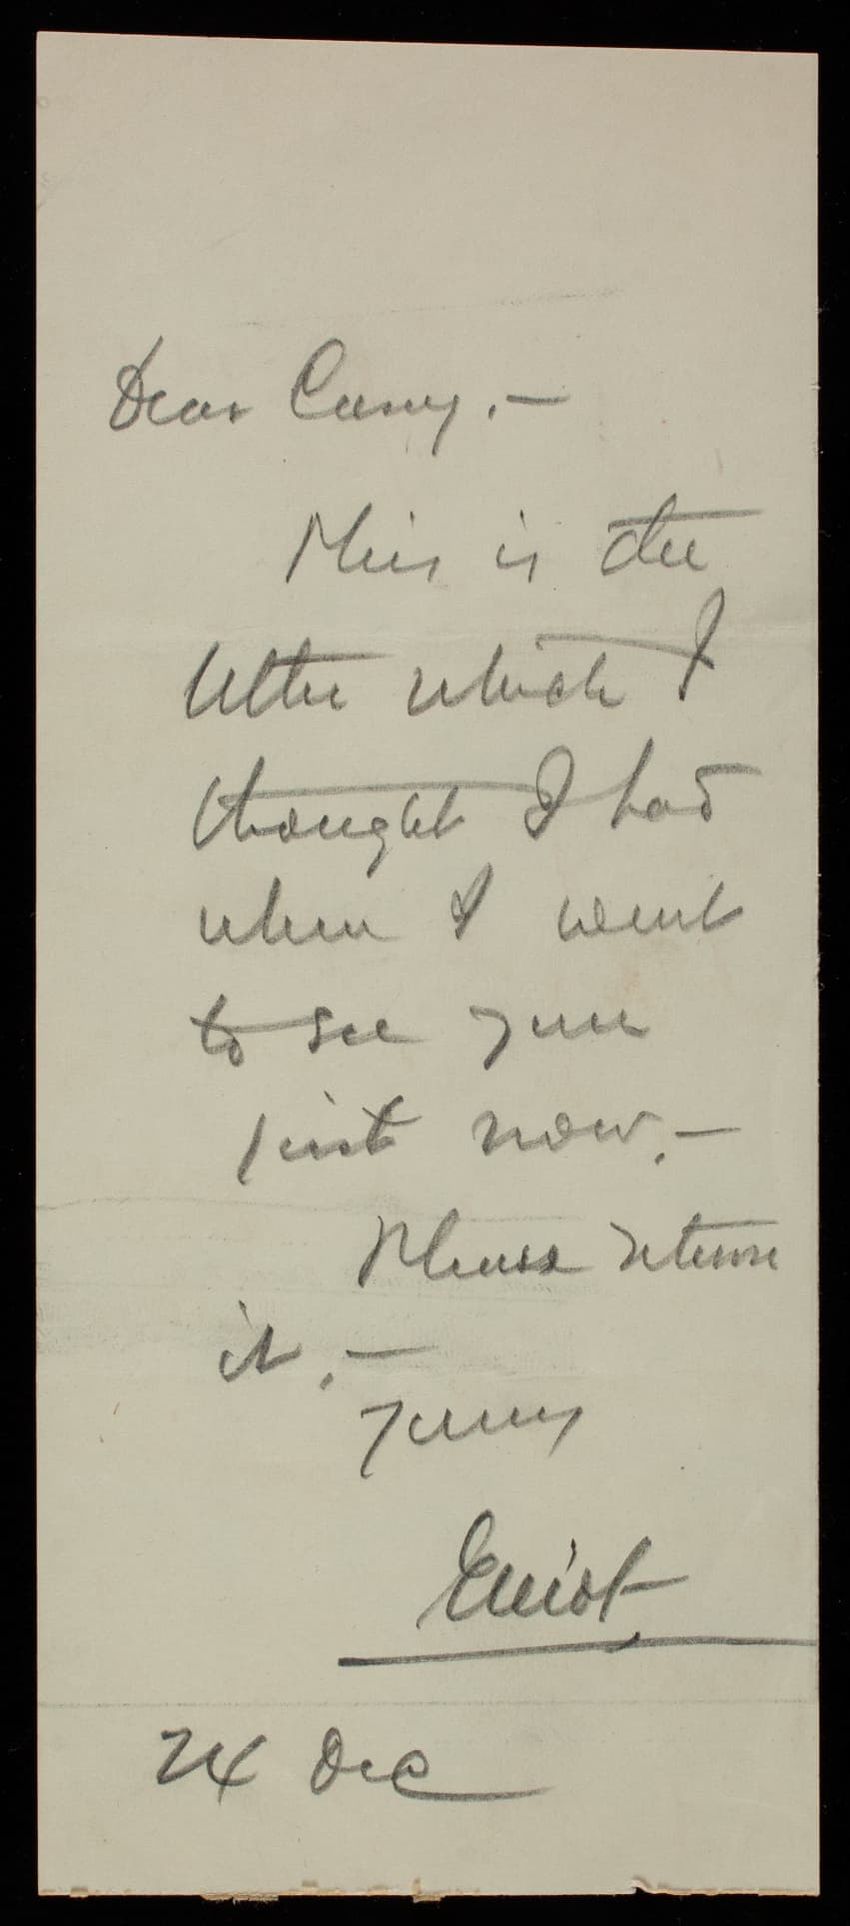 Dear Casey.—
This is the
letter which I
thought I had
when I went
to see you
just now.—
Please return
it.—
Yours
Elliot
24 Dec